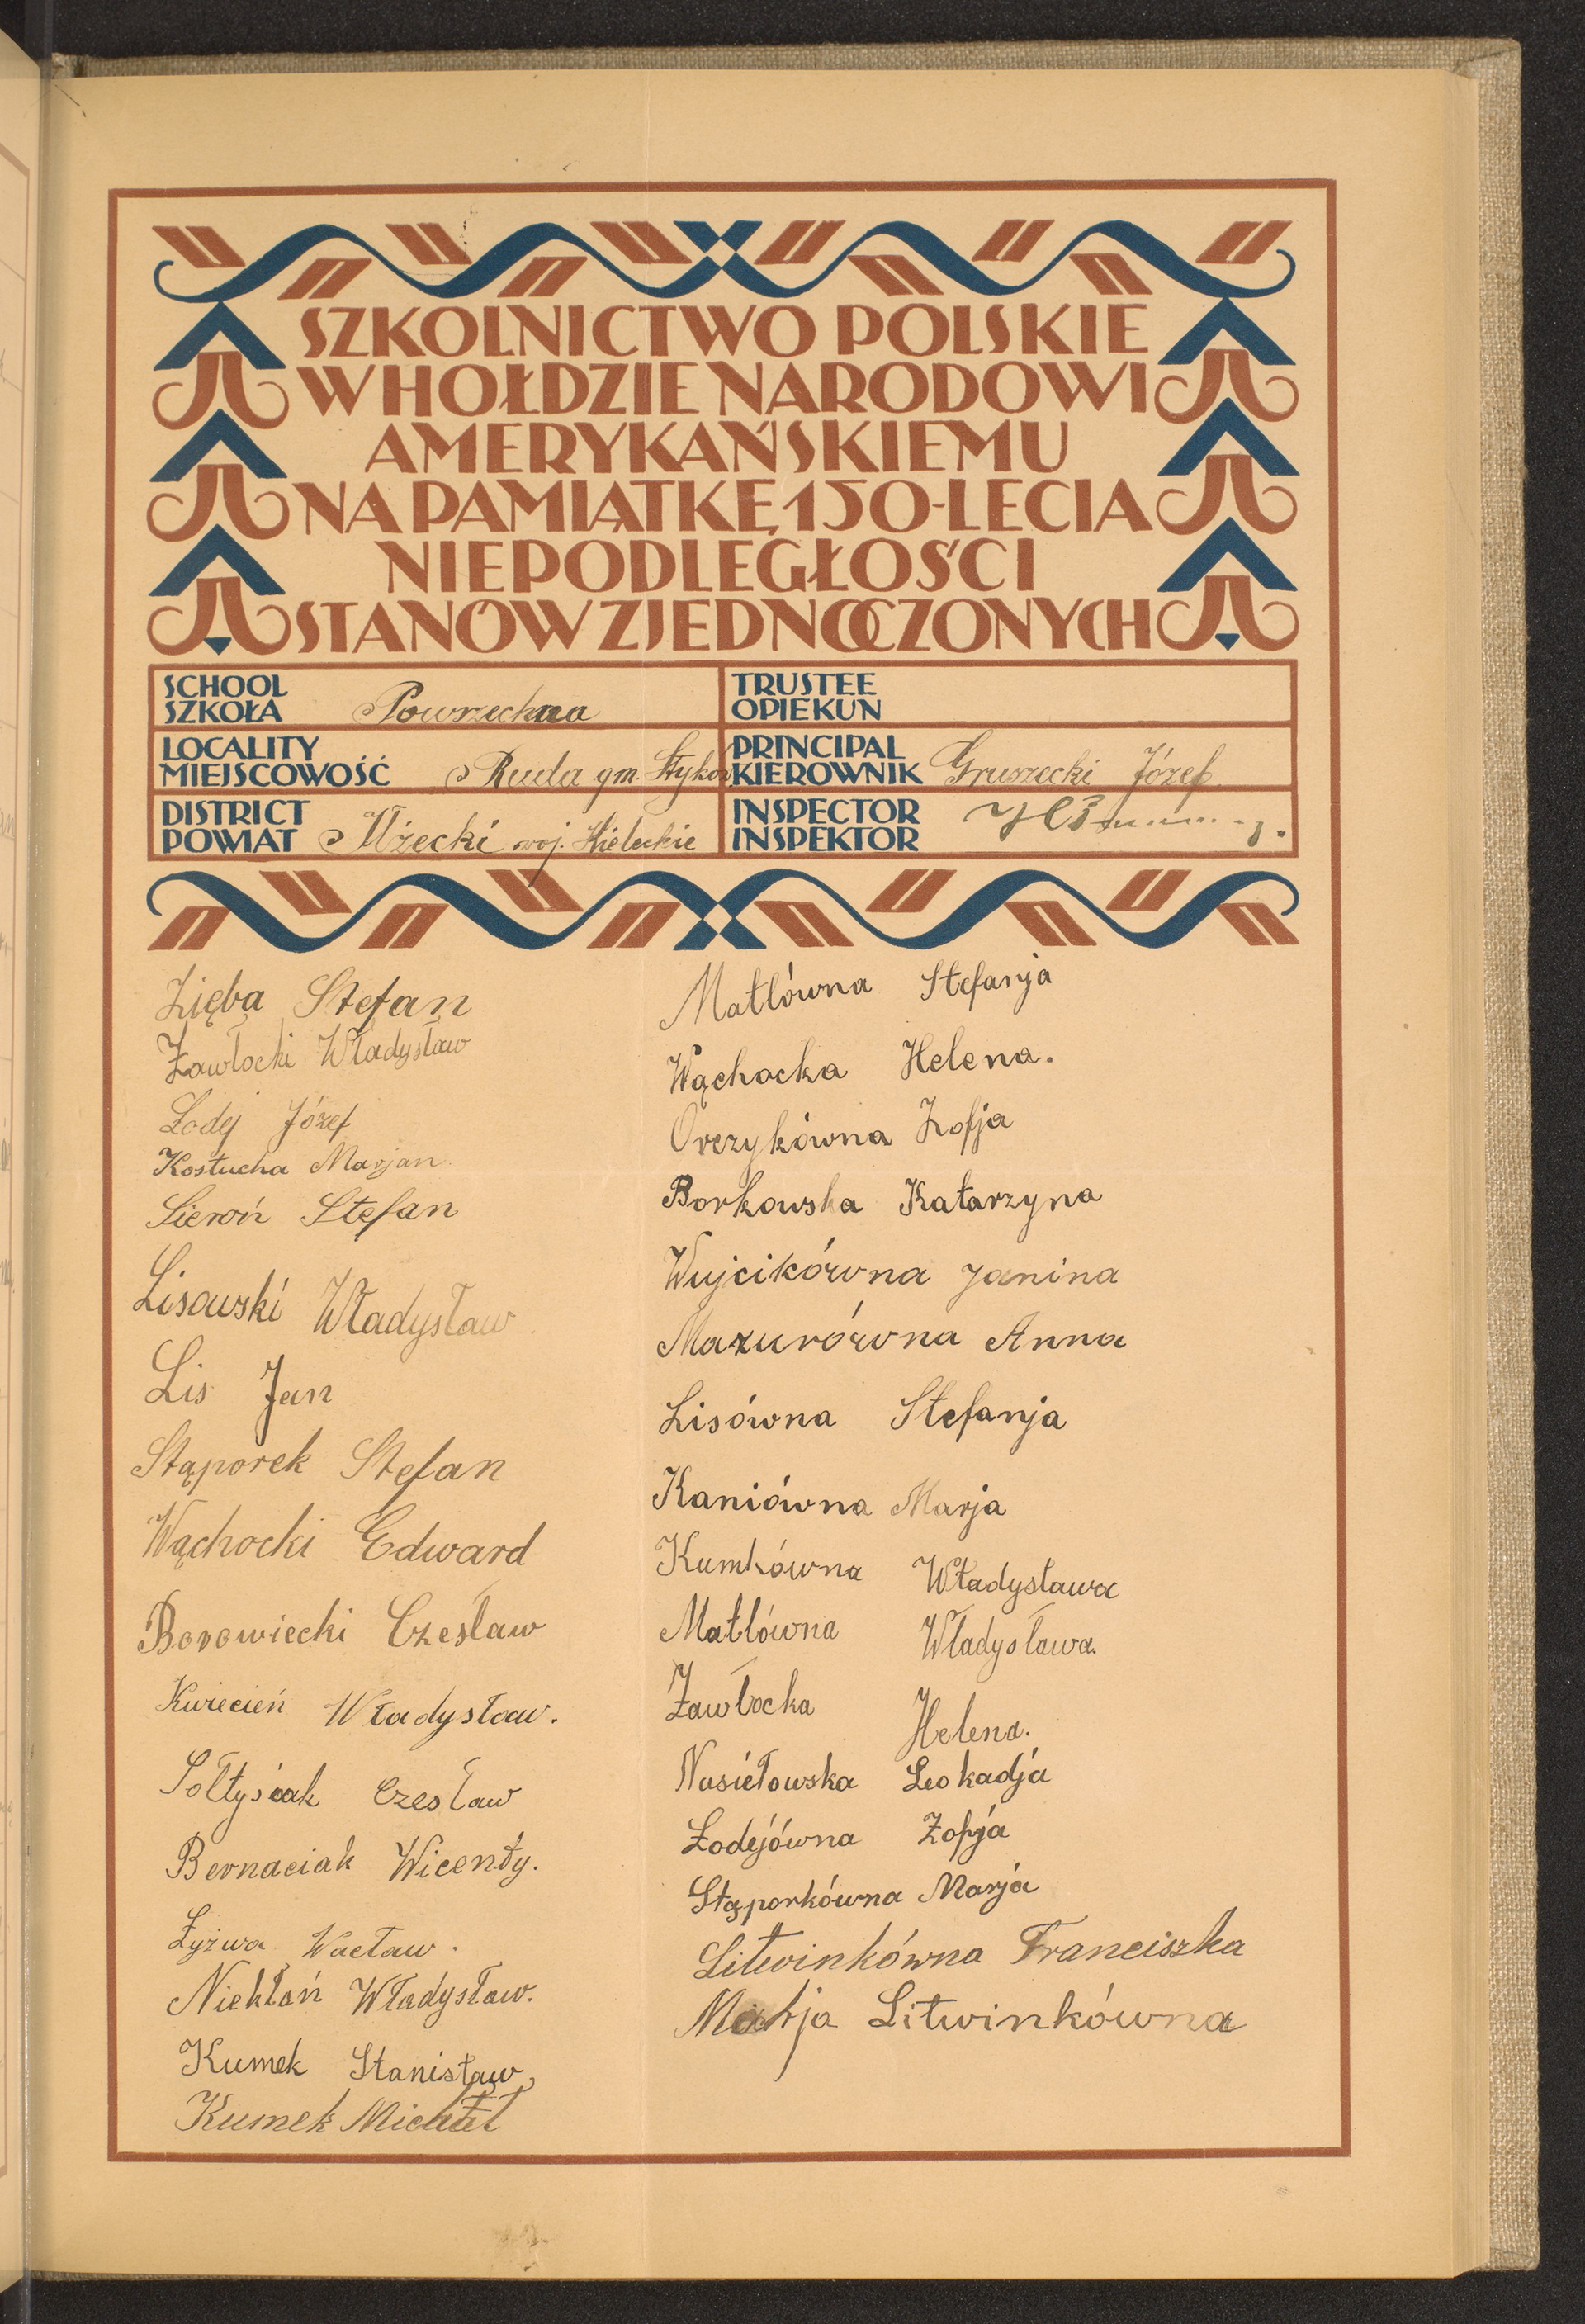 SZKOLNICTWO POLSKIE
W HOŁDZIE NARODOWI
AMERYKAŃSKIEMU
NA PAMIĄTKĘ 150-LECIA
NIEPODLEGŁOŚCI
STANÓW ZJEDNOCZONYCH
SCHOOL
SZKOŁA Powszechna
TRUSTEE
OPIEKUN
LOCALITY
MIEJSCOWOŚĆ Ruda gm. Styków
PRINCIPAL
KIEROWNIK Gruszecki Józef
DISTRICT
POWIAT Iłżecki woj. Kieleckie
INSPECTOR
INSPEKTOR
Zięba Stefan
Zawłocki Władysław
Łodej Józef
Kostucha Marjan
Sieroń Stefan
Lisowski Władysław
Lis Jan
Stąporek Stefan
Wąchocki Edward
Borowiecki Czesław
Kwiecień Władysław.
Sołtysiak Czesław
Bernaciak Wicenty.
Łyżwa Wacław.
Niekłań Władysław.
Kumek Stanisław
Kumek Michał
Matlówna Stefanja
Wąchocka Helena.
Orczykówna Zofja
Borkowska Katarzyna
Wujcikówna Janina
Mazurówna Anna
Lisówna Stefanja
Kaniówna Marja
Kumkówna Władysława
Matlówna Władysława.
Zawłocka Helena.
Nasiełowska Leokadja
Łodejówna Zofja
Stąporkówna Marja
Litwinkówna Franciszka
Marja Litwinkówna